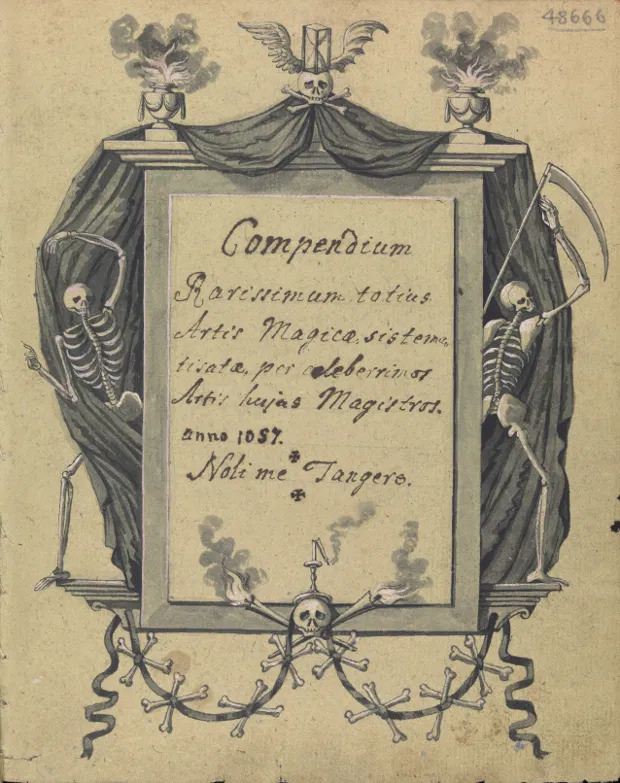 48666
Compendium
Rarissimum totius
Artis Magicæ sistema
tisatæ, per celeberrimos
Artis hujus Magistros.
anno 1057.
Noli me Tangere.